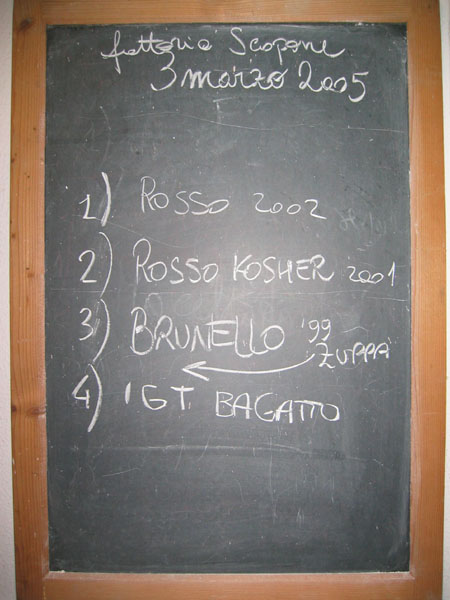 fattoria Scopone
3 marzo 2005
1) ROSSO 2002
2) ROSSO KOSHER 2001
3) BRUNELLO '99
ZUPPA
4) IGT BAGATTO